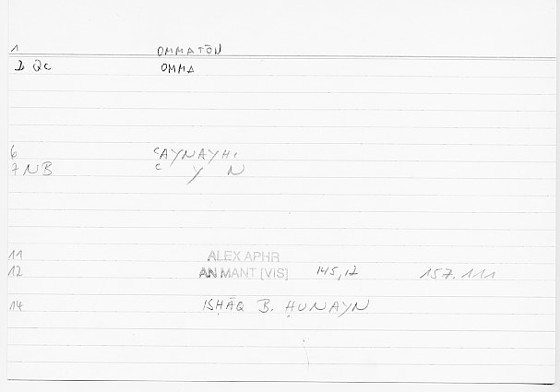 1 OMMATŌN
2 QC OMMA
6 ʿAYNAYHI
7 NB ʿ Y N
11 ALEX APHR
12 AN MANT [VIS] 145,17 157.111
14 ISḤĀQ B. ḤUNAYN